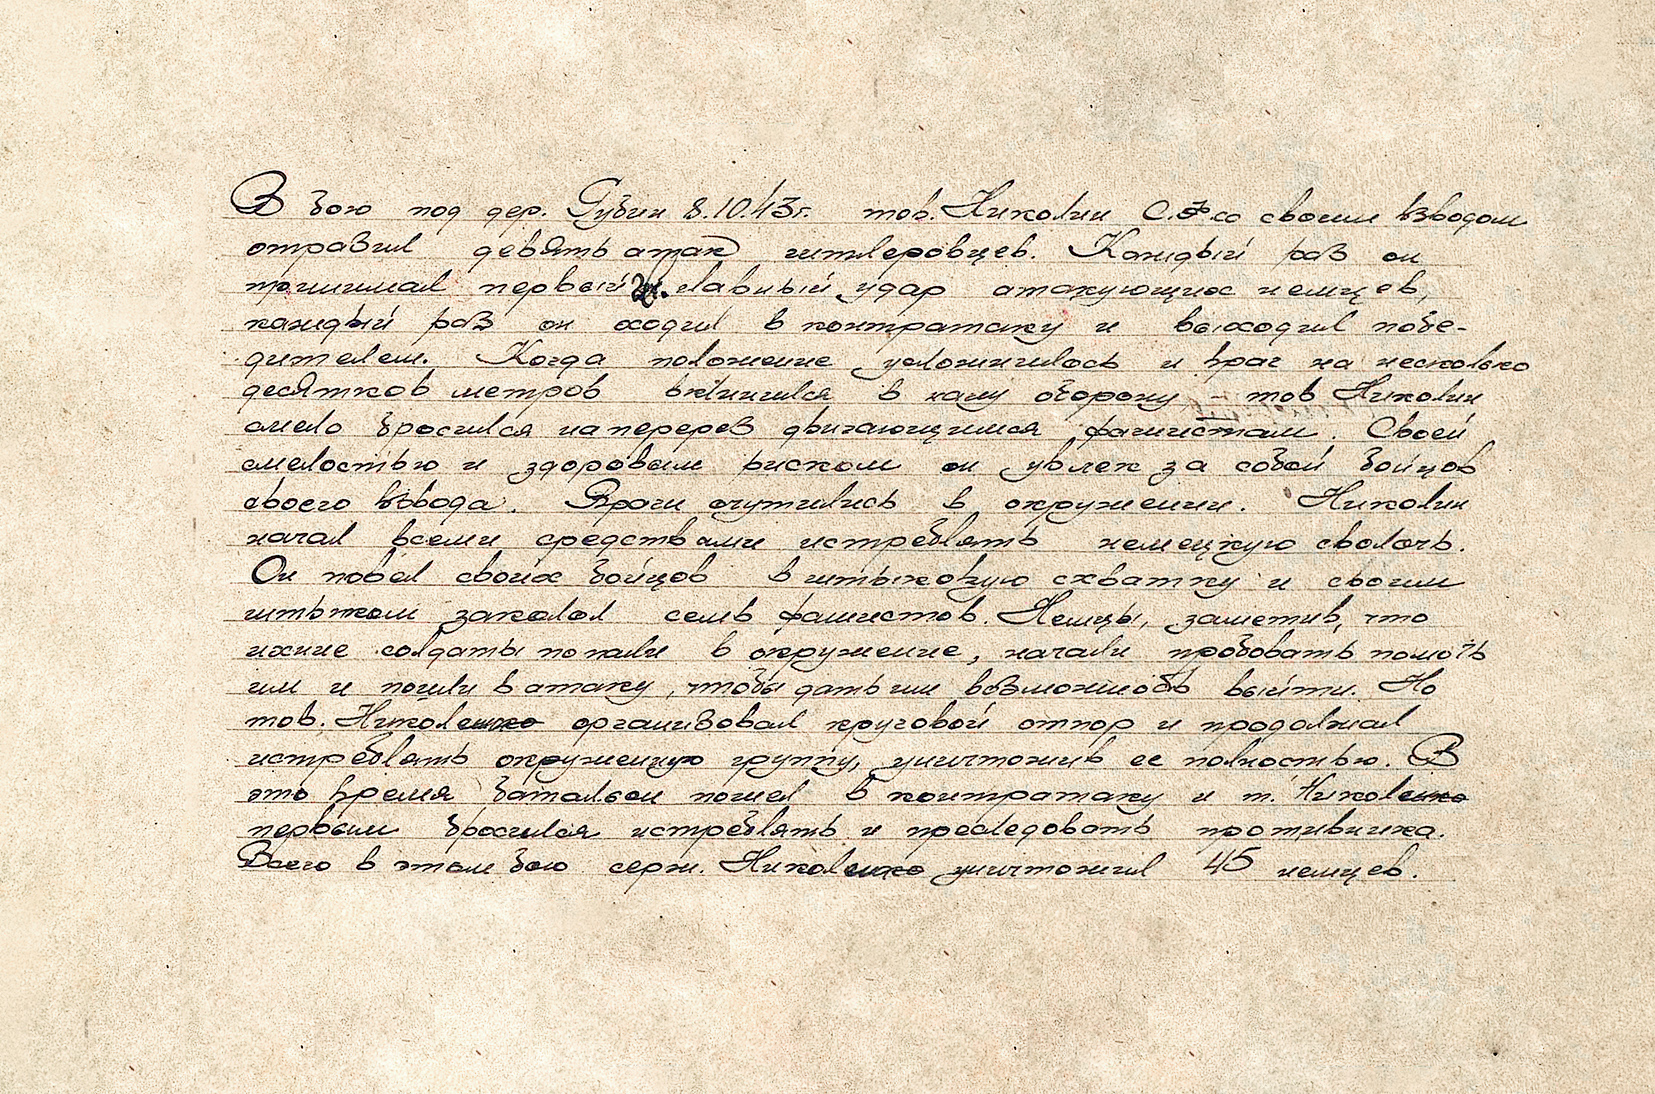 В бою под дер. Губин 8.10.43г. тов. Николин С.Ф. со своим взводом
отразил девять атак гитлеровцев. Каждый раз он
принимал первый главный удар атакующих немцев,
каждый раз он ходил в контратаку и выходил побе-
дителем. Когда положение усложнилось и враг на несколько
десятков метров вклинился в нашу оборону – тов Николин
смело бросился наперерез двигающимся фашистам. Своей
смелостью и здоровым риском он увлек за собой бойцов
своего взвода. Враги очутились в окружении. Николин
начал всеми средствами истреблять немецкую сволочь.
Он повел своих бойцов в штыковую схватку и своим
штыком заколол семь фашистов. Немцы, заметив, что
ихние солдаты попали в окружение, начали пробовать помочь
им и пошли в атаку, чтобы дать им возможность выйти. Но
тов. Николенко организовал круговой отпор и продолжал
истреблять окруженную группу, уничтожив ее полностью. В
это время батальон пошел в контратаку и т. Николенко
первым бросился истреблять и преследовать противника.
Всего в этом бою серж. Николенко уничтожил 45 немцев.